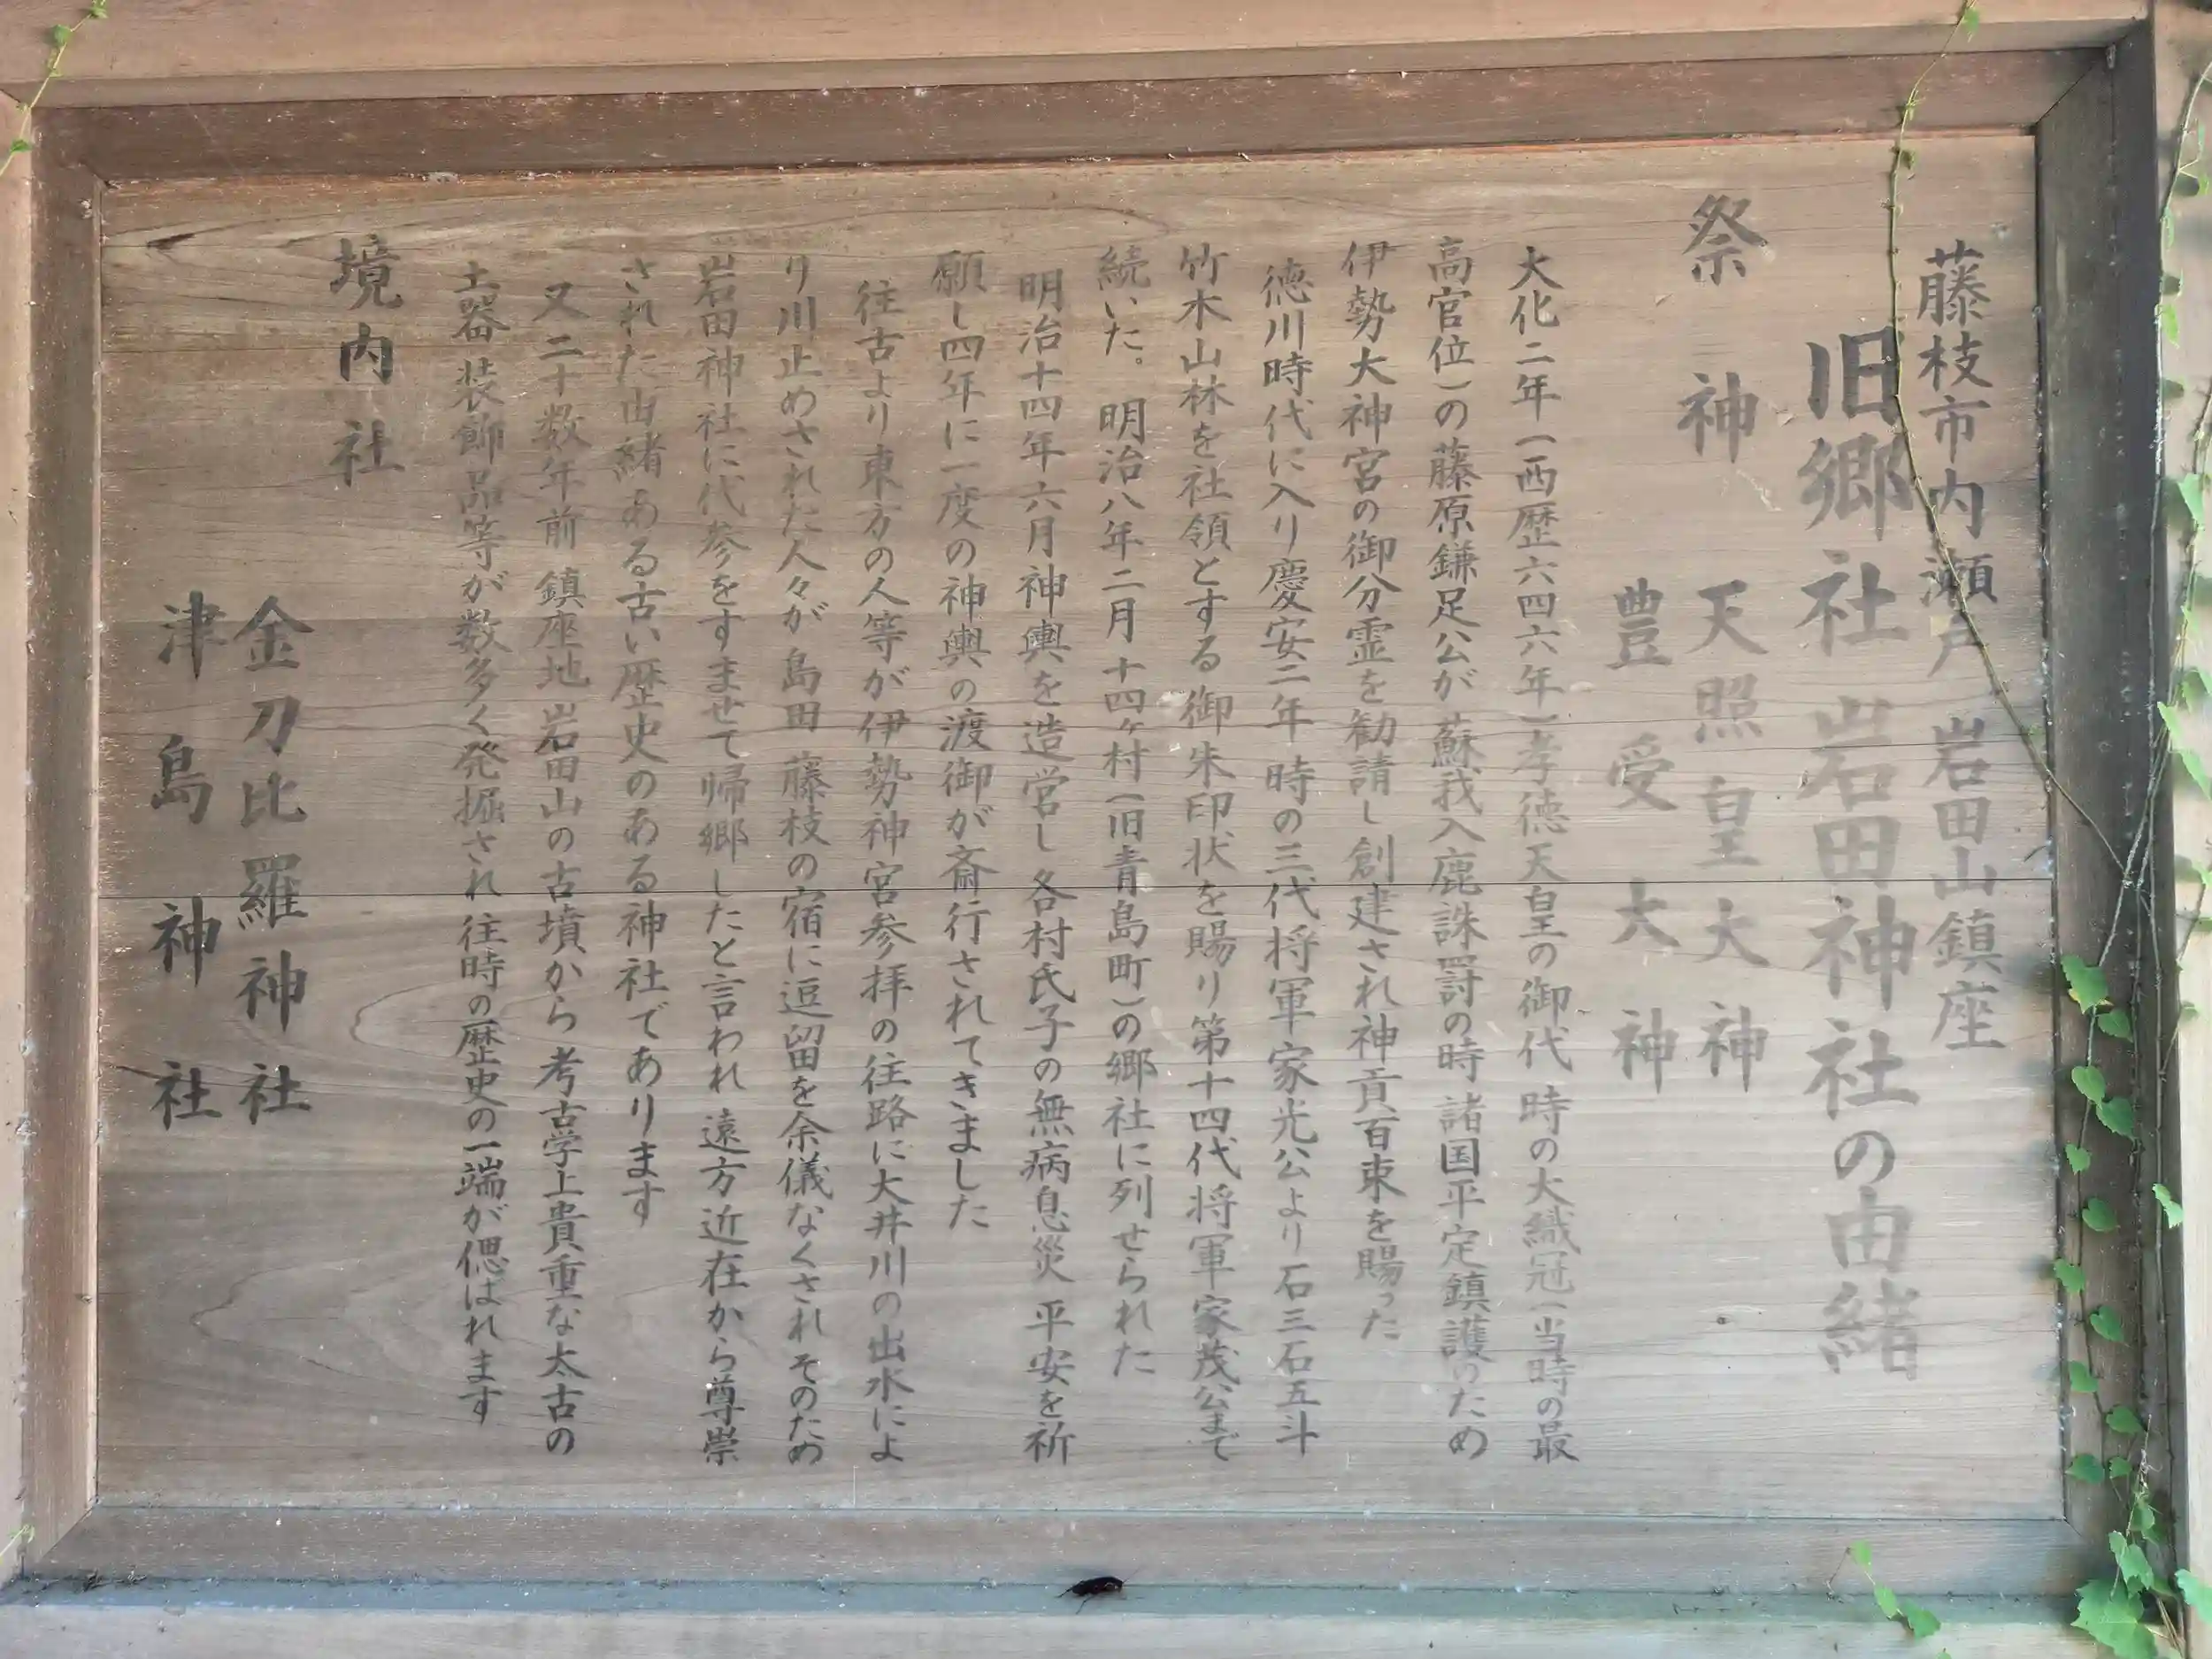 藤枝市内瀬戸 岩田山鎮座
旧郷社 岩田神社の由緒
祭神 天照皇大神
豊受大神
大化二年(西歴六四六年)孝徳天皇の御代 時の大織冠(当時の最
高官位)の藤原鎌足公が 蘇我入鹿誅罸の時 諸国平定鎮護のため
伊勢大神宮の御分霊を勧請し創建され神貢百束を賜った
徳川時代に入り慶安二年 時の三代将軍家光公より石三石五斗
竹木山林を社領とする御朱印状を賜り第十四代将軍家茂公まで
続いた。明治八年二月十四ヶ村(旧青島町)の郷社に列せられた
明治十四年六月神輿を造営し 各村氏子の無病息災 平安を祈
願し四年に一度の神輿の渡御が斎行されてきました
往古より東方の人等が伊勢神宮参拝の往路に大井川の出水によ
り川止めされた人々が島田 藤枝の宿に逗留を余儀なくされそのため
岩田神社に代参をすませて帰郷したと言われ 遠方近在から尊崇
された由緒ある古い歴史のある神社であります
又二十数年前 鎮座地 岩田山の古墳から 考古学上貴重な太古の
土器 装飾品等が数多く発掘され 往時の歴史の一端が偲ばれます
境内社
金刀比羅神社
津島神社